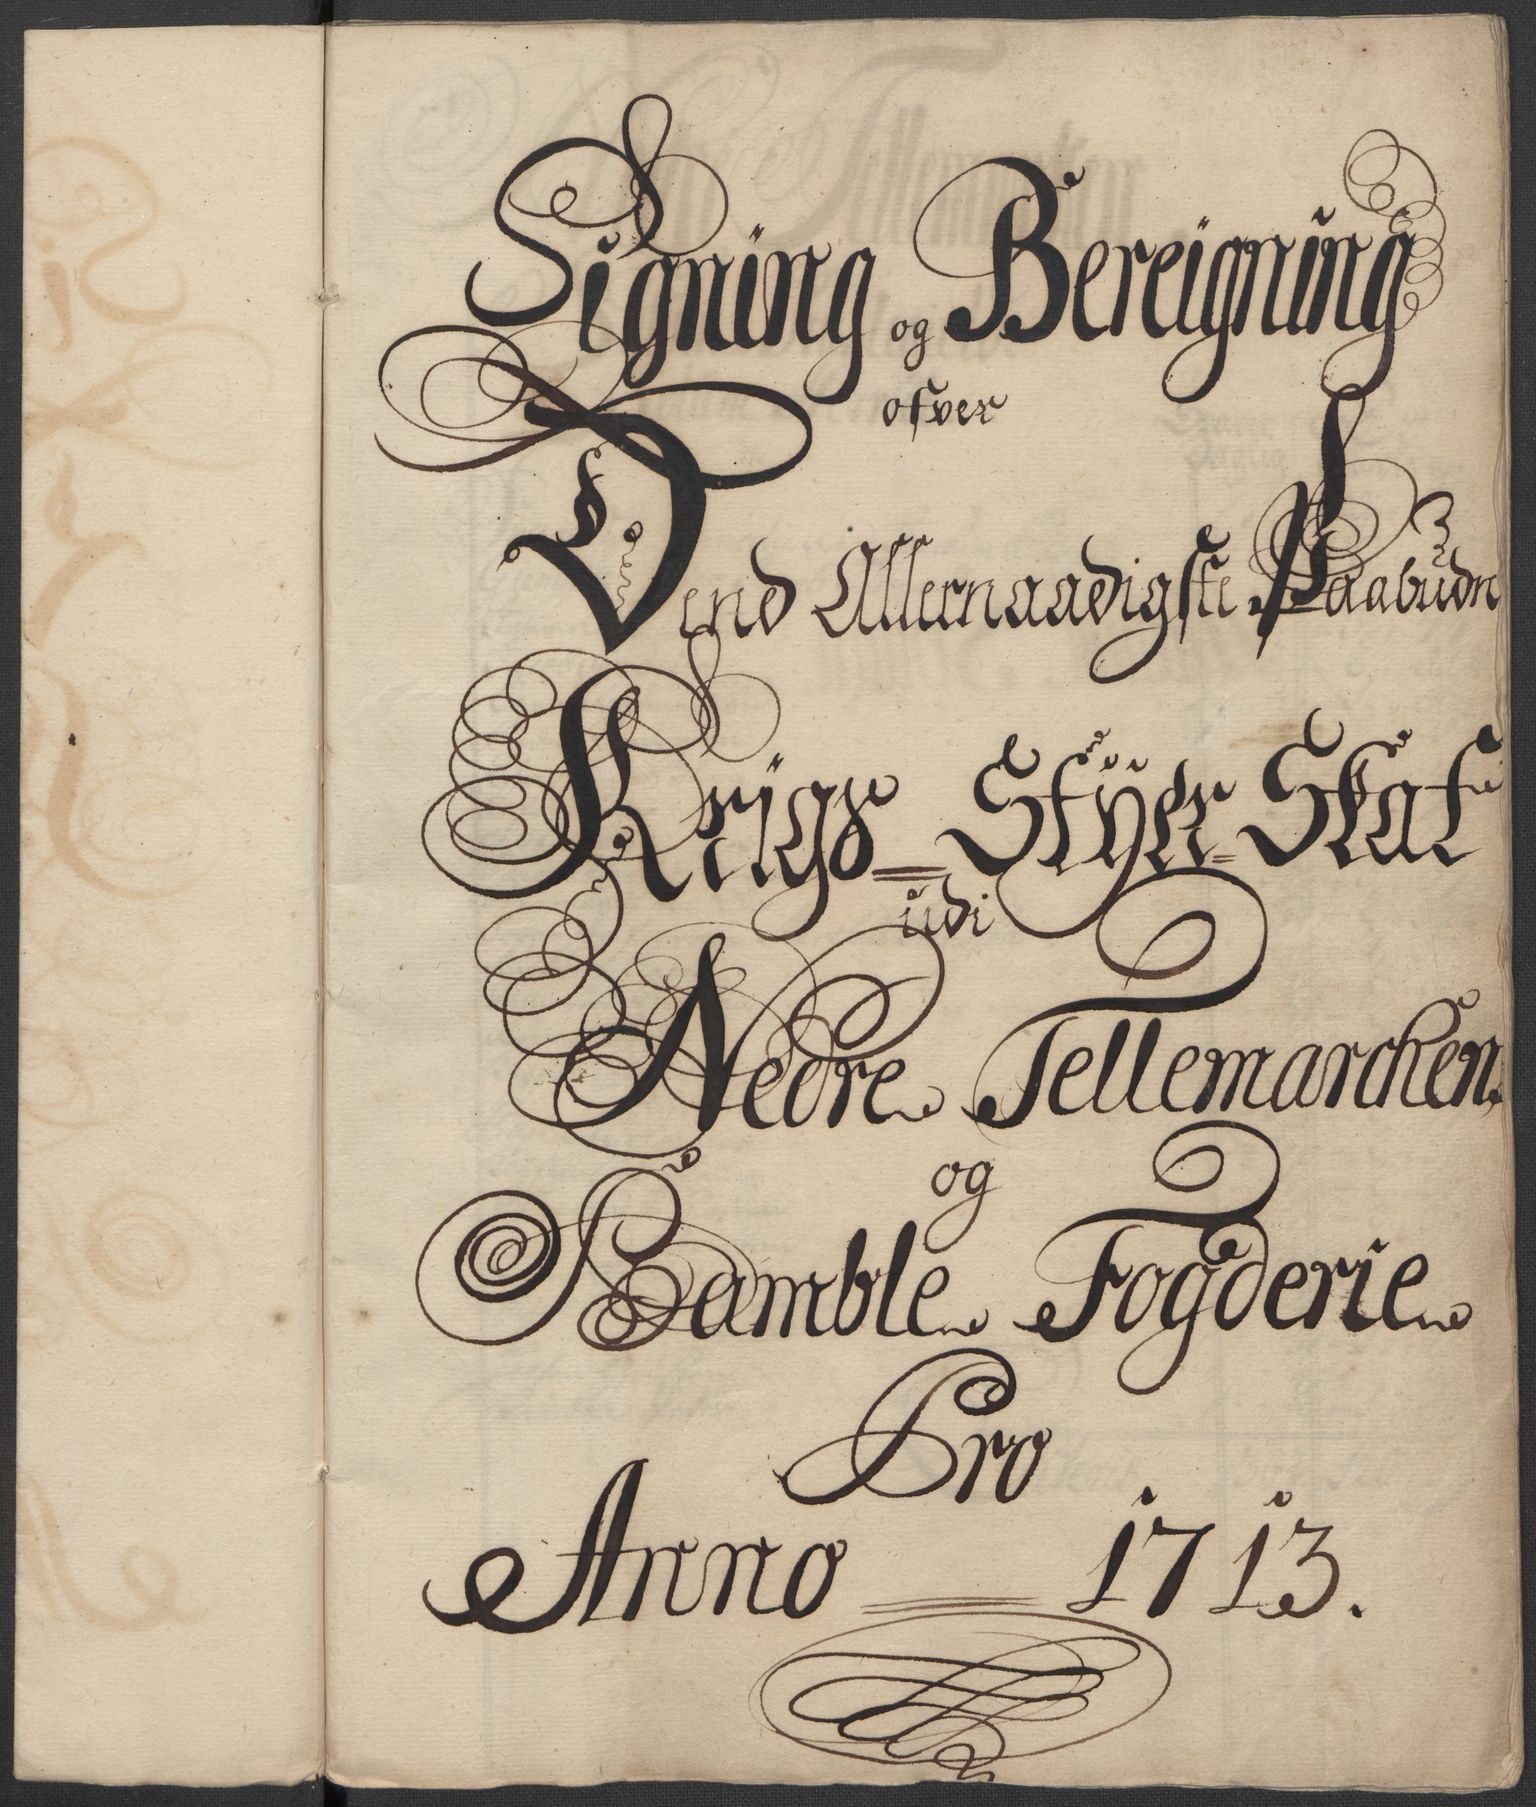 Signing og Bereigning
ofver
Dend Allernaadigste Paabudn
Krigs = Styer = Skat
udi
Nedre Tellemarcken
og
Bamble Fogderie
Pro
Anno = 1713.